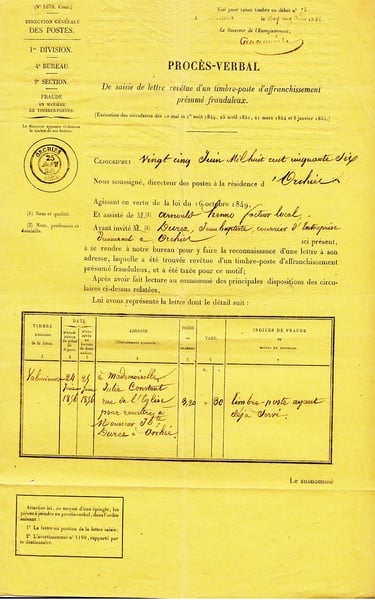 (N° 1078. Cour.)
DIRECTION GÉNÉRALE
DES POSTES.
1re DIVISION.
4e BUREAU.
2e SECTION.
FRAUDE
EN MATIÈRE
DE TIMBRES-POSTES.
Le directeur apposera ci-dessous
le timbre de son bureau.
ORCHIES
25
Visé pour valoir timbre en débet n° 75
Le Receveur de l'Enregistrement,
PROCÈS-VERBAL
De saisie de lettre revêtue d'un timbre-poste d'affranchissement
présumé frauduleux.
(Exécution des circulaires des 10 mai et 1er août 1849, 25 mai 1851, 21 mars 1854 et 8 janvier 1855.)
CEJOURD'HUI vingt cinq Juin Mil huit cent cinquante Six
Nous soussigné, directeur des postes à la résidence d'Orchies
Agissant en vertu de la loi du 16 octobre 1849.
(1) Nom et qualité.
Et assisté de M. (1) facteur local.
(2) Nom, profession et
domicile.
Ayant invité M. (2) Durez Jean baptiste, courrier d'Entreprise
Demeurant à Orchies
ici présent,
à se rendre à notre bureau pour y faire la reconnaissance d'une lettre à son
adresse, laquelle a été trouvée revêtue d'un timbre-poste d'affranchissement
présumé frauduleux, et a été taxée pour ce motif;
Après avoir fait lecture au susnommé des principales dispositions des circu-
laires ci-dessus relatées,
Lui avons représenté la lettre dont le détail suit :
TIMBRE
de la lettre.
DATE
ADRESSE
POIDS
TAXE
INDICES DE FRAUDE
1 2 3 4 5 6 7
24 Juin 1856
25 Juin 1856
à Mademoiselle
Julie Constant
rue de l'Eglise
pour remettre à
Monsieur J. Bte
Durez à Orchies
30
timbre-poste ayant
déjà servi.
Le susnommé
Attacher ici, au moyen d'une épingle, les
pièces à joindre au procès-verbal, dans l'ordre
suivant :
1° La lettre ou portion de la lettre saisie;
2° L'avertissement n° 1199, rapporté par
le destinataire.